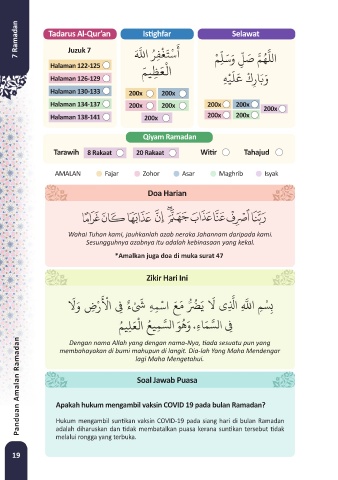 7 Ramadan
Tadarus Al-Qur'an
Istighfar
Selawat
Juzuk 7
Halaman 122-125
Halaman 126-129
Halaman 130-133
Halaman 134-137
Halaman 138-141
أَسْتَغْفِرُ اللَّهَ
الْعَظِيمَ
200x 200x
200x 200x
200x
اللَّهُمَّ صَلِّ وَسَلِّمْ
وَبَارِكْ عَلَيْهِ
200x 200x
200x
200x 200x
Qiyam Ramadan
Tarawih 8 Rakaat 20 Rakaat Witir Tahajud
AMALAN Fajar Zohor Asar Maghrib Isyak
Doa Harian
رَبَّنَا اصْرِفْ عَنَّا عَذَابَ جَهَنَّمَ ۖ إِنَّ عَذَابَهَا كَانَ غَرَامًا
Wahai Tuhan kami, jauhkanlah azab neraka Jahannam daripada kami.
Sesungguhnya azabnya itu adalah kebinasaan yang kekal.
*Amalkan juga doa di muka surat 47
Zikir Hari Ini
بِسْمِ اللَّهِ الَّذِي لَا يَضُرُّ مَعَ اسْمِهِ شَيْءٌ فِي الْأَرْضِ وَلَا
فِي السَّمَاءِ، وَهُوَ السَّمِيعُ الْعَلِيمُ
Dengan nama Allah yang dengan nama-Nya, tiada sesuatu pun yang
membahayakan di bumi mahupun di langit. Dia-lah Yang Maha Mendengar
lagi Maha Mengetahui.
Soal Jawab Puasa
Apakah hukum mengambil vaksin COVID 19 pada bulan Ramadan?
Hukum mengambil suntikan vaksin COVID-19 pada siang hari di bulan Ramadan
adalah diharuskan dan tidak membatalkan puasa kerana suntikan tersebut tidak
melalui rongga yang terbuka.
Panduan Amalan Ramadan
19